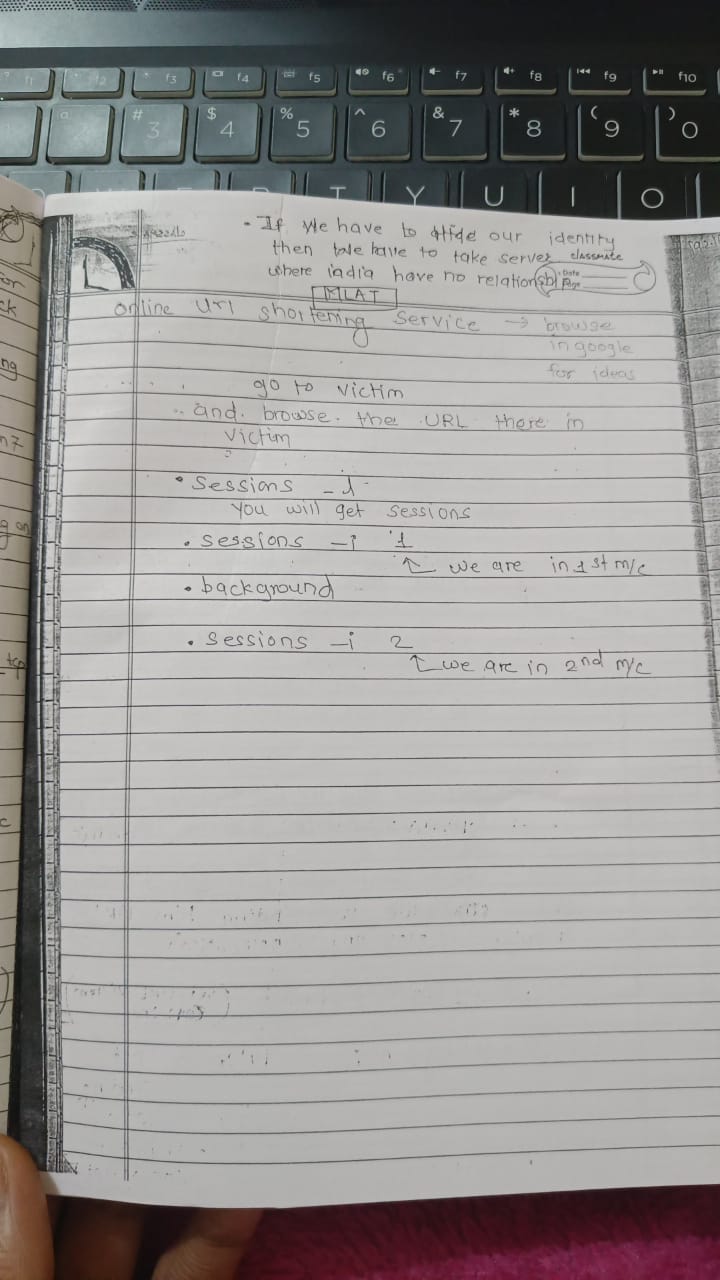 f1 f2 f3 f4 f5 f6 f7 f8 f9 f10
# 3 $ 4 % 5 ^ 6 & 7 * 8 ( 9 ) 0
T Y U I O
• If we have to Hide our identity
then we have to take server classmate
where india have no relationship Date
Page
MLAT
online url shortening service → browse
in google
for ideas
go to victim
and browse the URL there in
victim
• sessions -i
you will get sessions
• sessions -i 1
↑ we are in 1st m/c
• background
• sessions -i 2
↑ we are in 2nd m/c